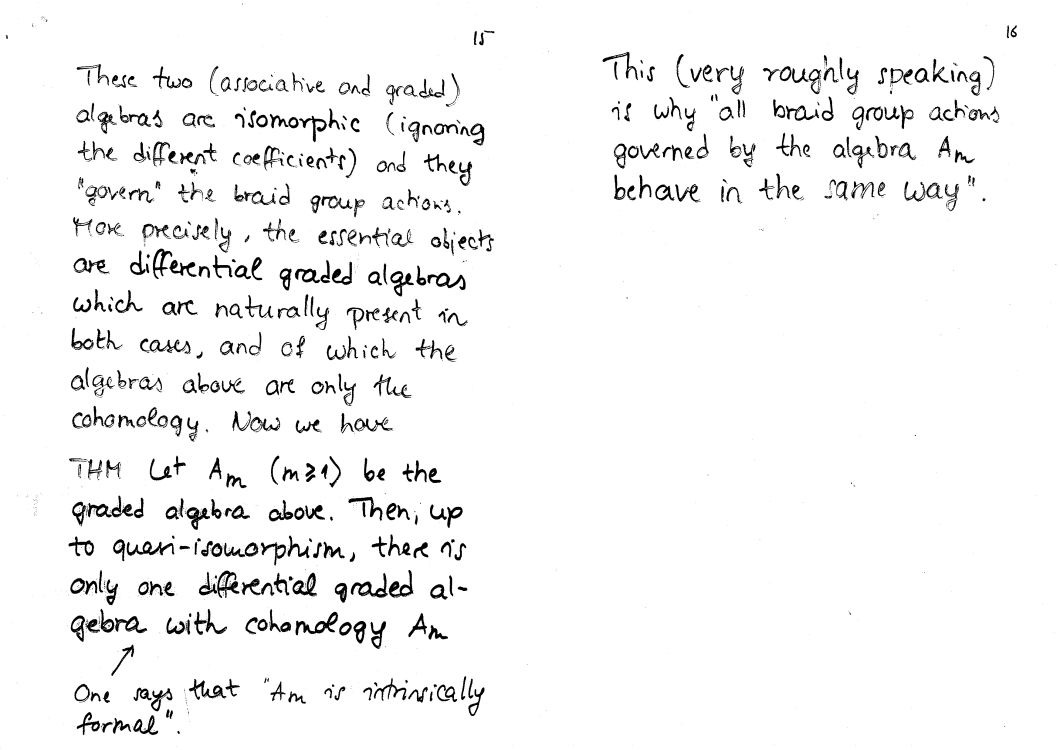 15
These two (associative and graded)
algebras are isomorphic (ignoring
the different coefficients) and they
"govern" the braid group actions.
More precisely, the essential objects
are differential graded algebras
which are naturally present in
both cases, and of which the
algebras above are only the
cohomology. Now we have
THM Let Am (m≥1) be the
graded algebra above. Then, up
to quasi-isomorphism, there is
only one differential graded al-
gebra with cohomology Am
One says that "Am is intrinsically
formal".
16
This (very roughly speaking)
is why "all braid group actions
governed by the algebra Am
behave in the same way".